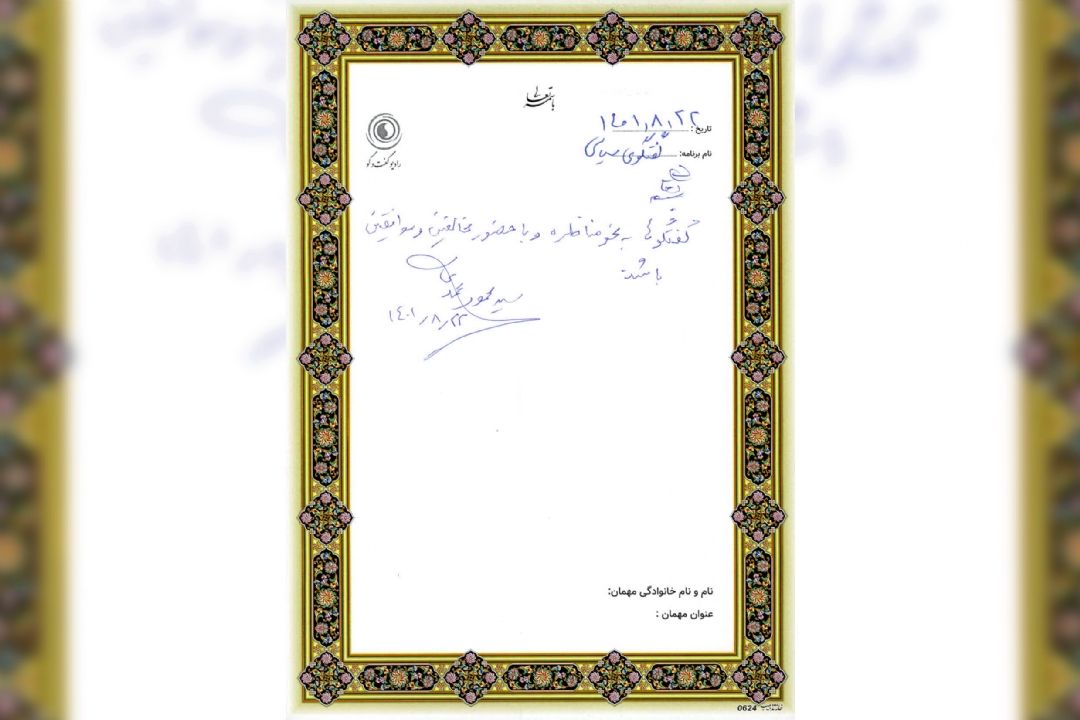 باسمه تعالی
تاریخ: ۱۴۰۱/۸/۲۲
رادیو گفت و گو
نام برنامه: گفتگوی سیاسی
گفتگوها به نحو مناظره و با حضور مخالفین و موافقین
باشد
سید محمود
۱۴۰۱/۸/۲۲
نام و نام خانوادگی مهمان:
عنوان مهمان :
0624